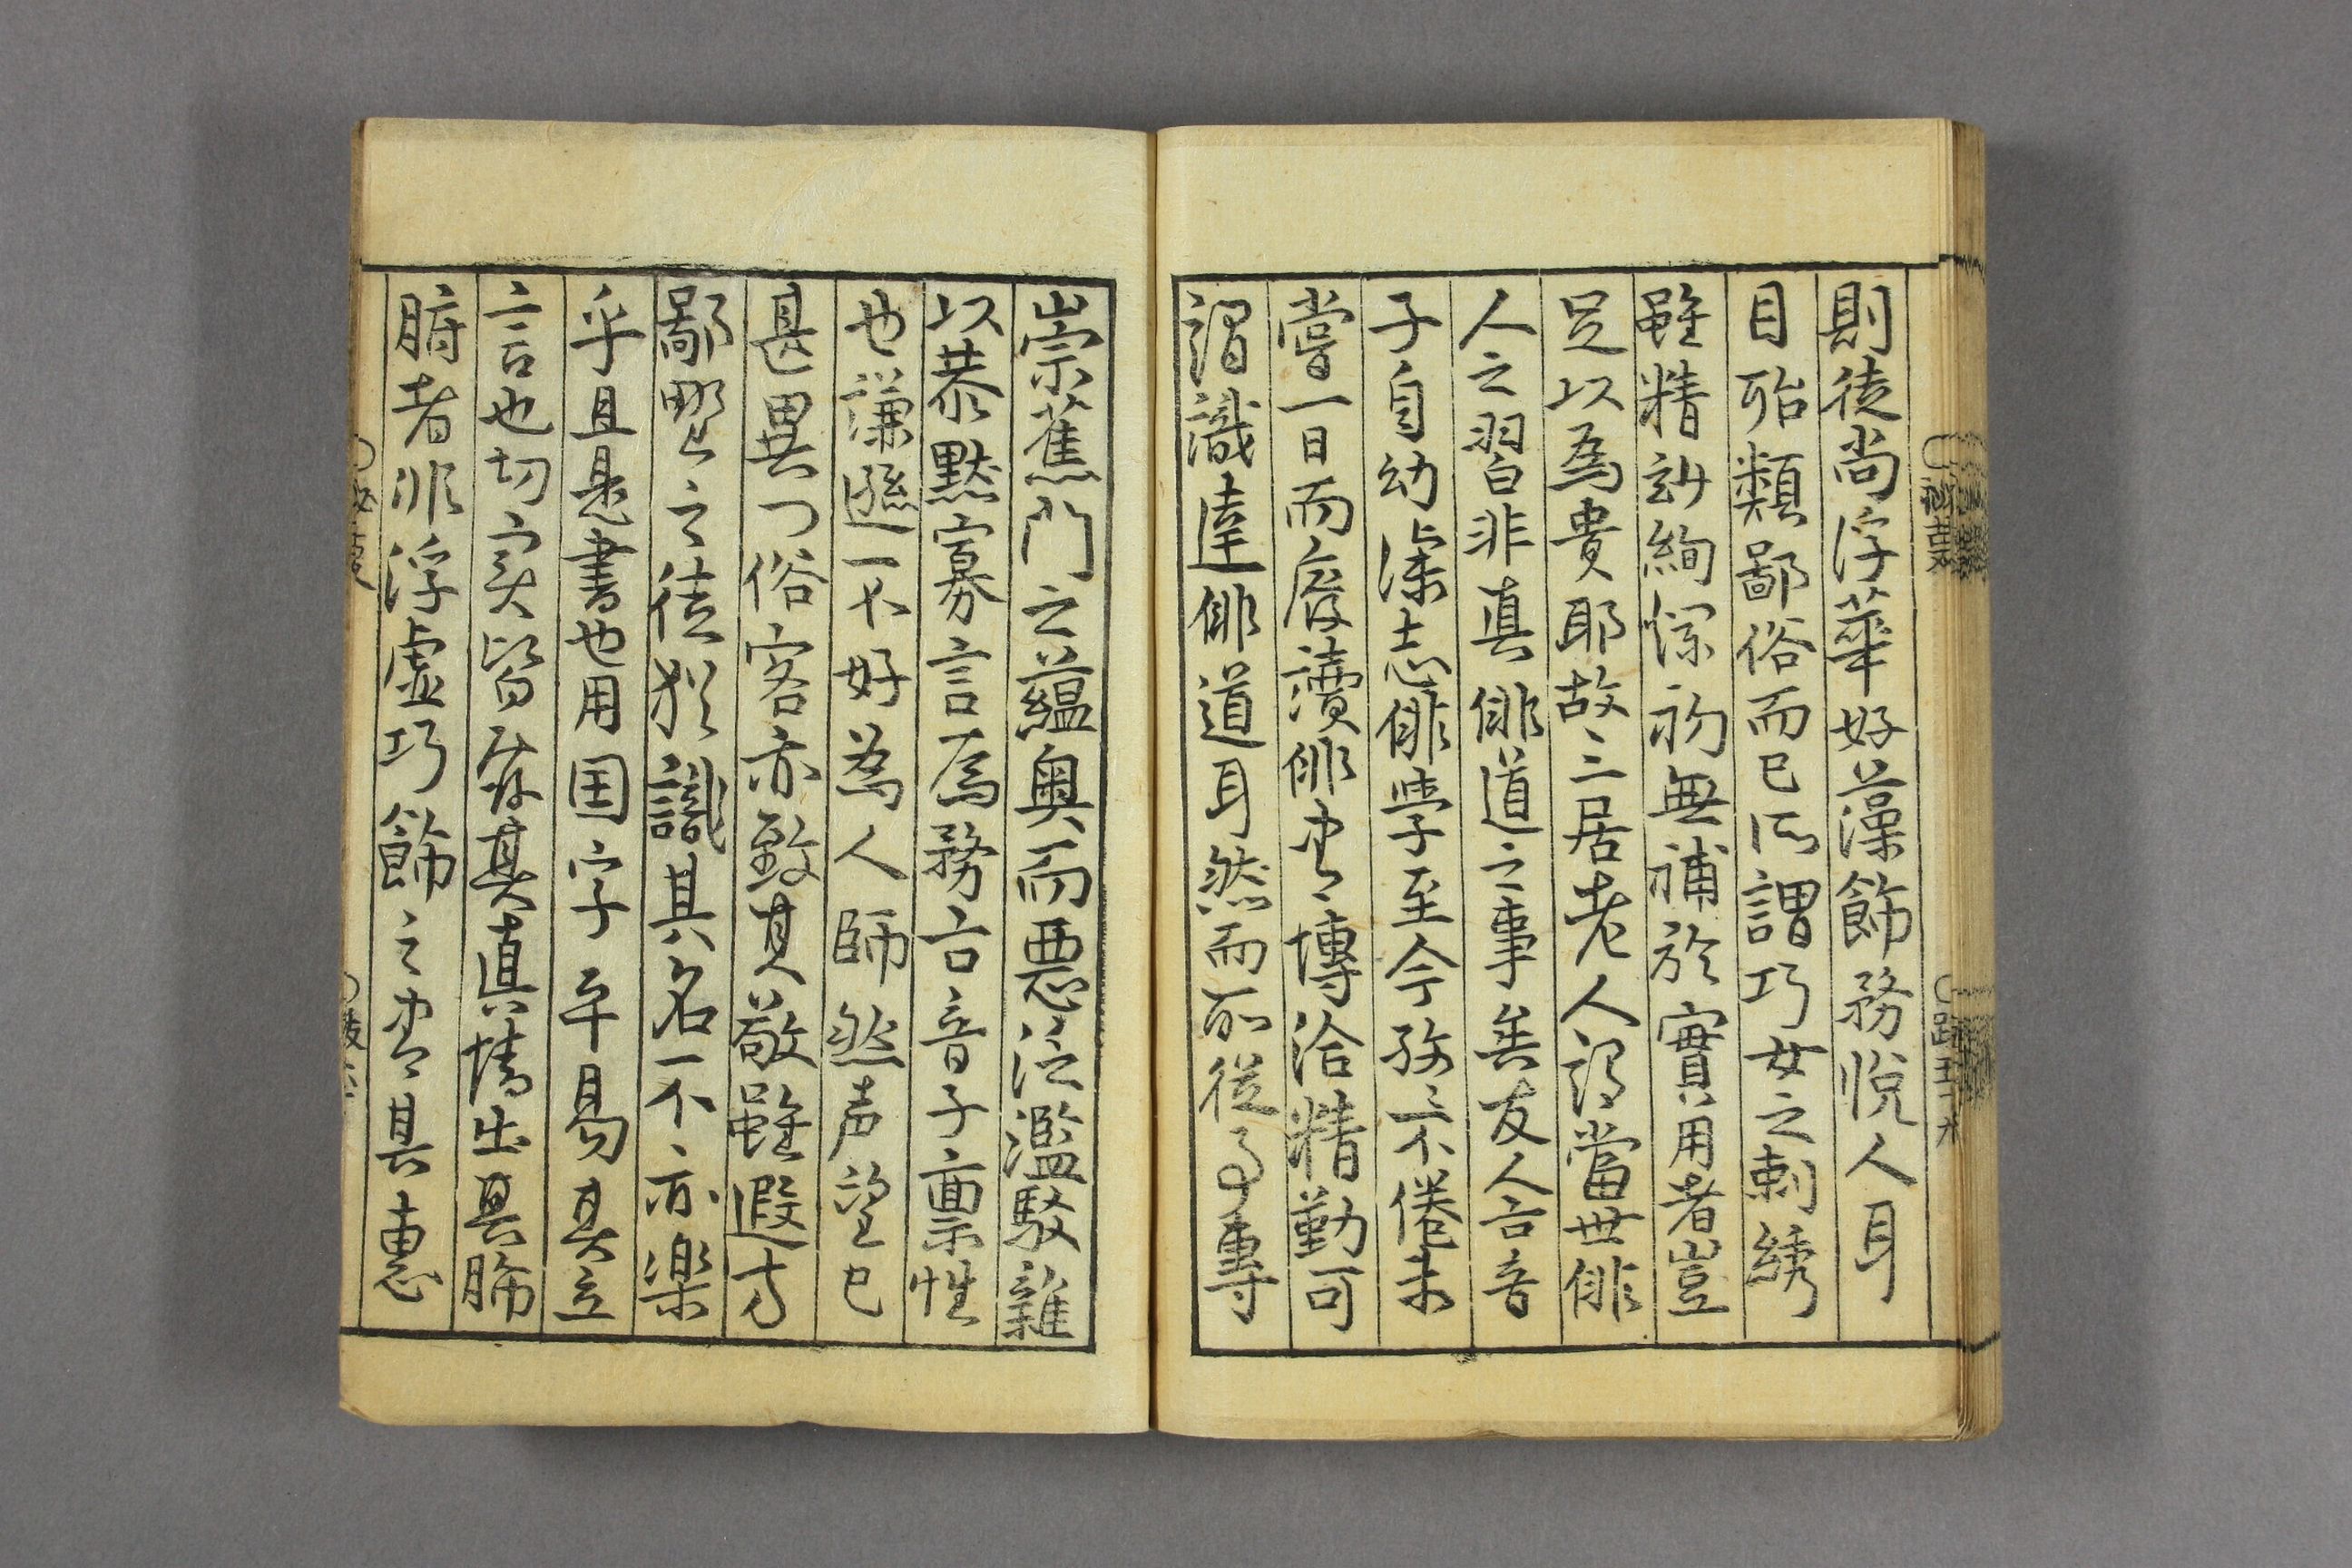 則徒尚浮華好藻飾務悦人耳
目殆類鄙俗而已所謂巧女之刺綉
雖精訬絢爛初無補於實用者豈
足以為貴耶故三居老人謂當世俳
人之習白非真俳道之事矣友人言音
子自幼深志俳學至今孜々不倦未
嘗一日而廢讀俳書博洽精勤可
謂識達俳道耳然而所從事專
崇蕉門之蘊奥而悪泛濫駁雜
以恭黙寡言為務言音子稟性
也謙遜不好為人師然声望已
甚異つ俗客亦致其敬雖遐方
鄙野之徒猶識其名不亦楽
乎且是書也用国字平易其立
言也切実皆發其真情出其肺
腑者非浮虚巧飾之書其惠